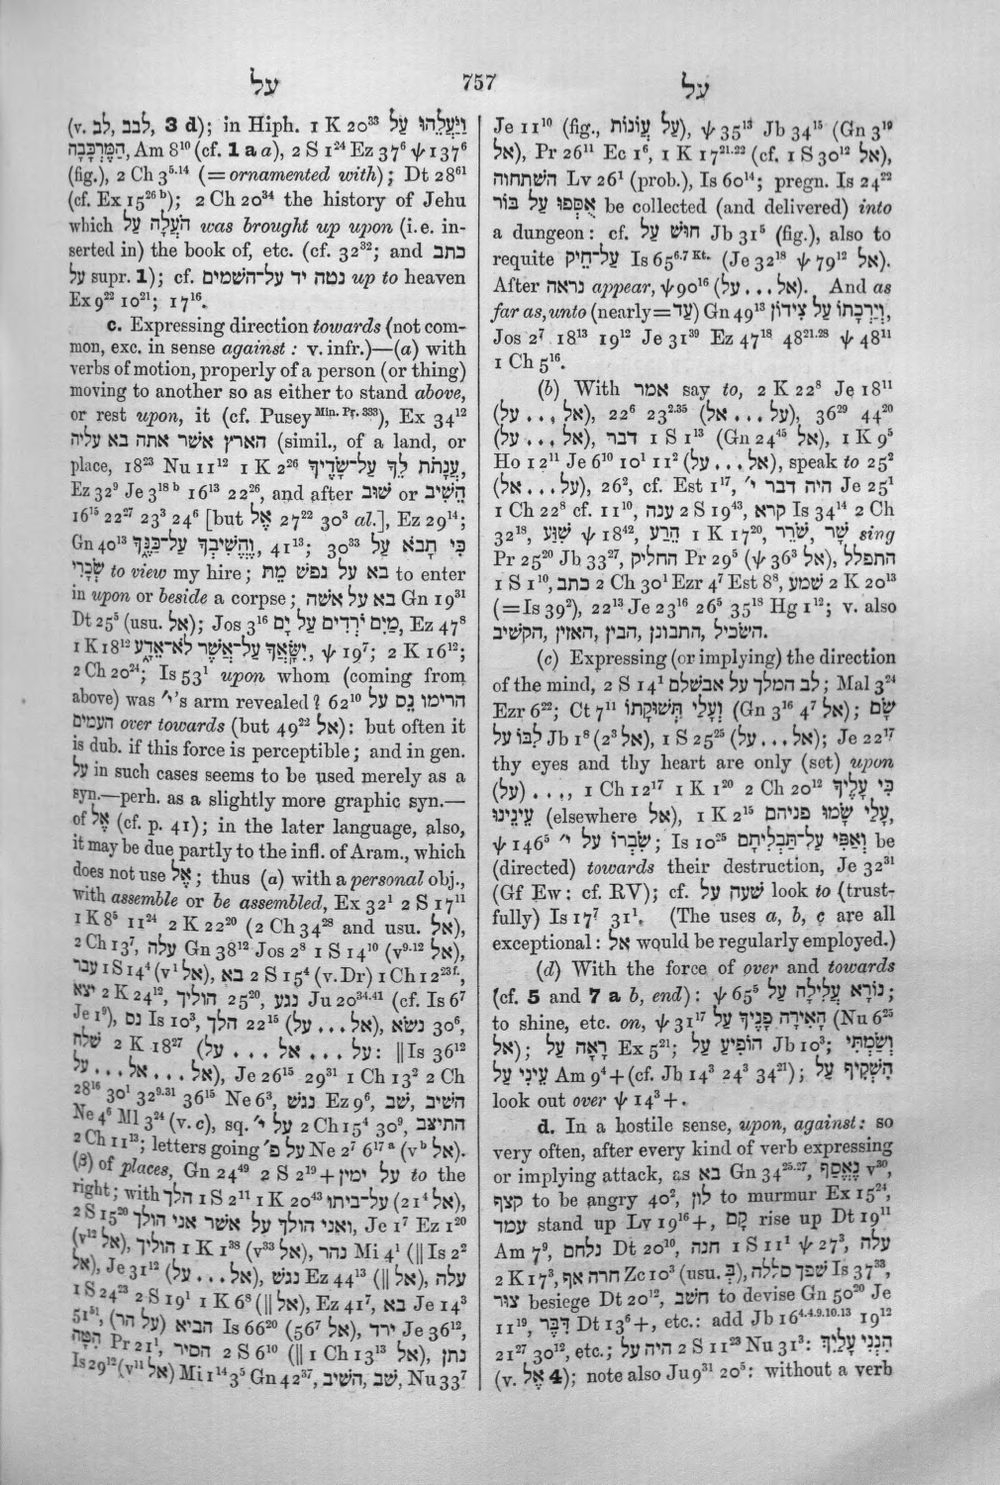 על 757 על
(v. לבב, לב, 3 d); in Hiph. 1 K 20³³ וַיַּעֲלֵהוּ עַל
הַמֶּרְכָּבָה, Am 8¹⁰ (cf. 1 a a), 2 S 1²⁴ Ez 37⁶ ψ 137⁶
(fig.), 2 Ch 3⁵·¹⁴ (= ornamented with); Dt 28⁶¹
(cf. Ex 15²⁶ᵇ); 2 Ch 20³⁴ the history of Jehu
which הֹעֲלָה עַל was brought up upon (i.e. in-
serted in) the book of, etc. (cf. 32³²; and כתב
על supr. 1); cf. נטה יד על־השמים up to heaven
Ex 9²² 10²¹; 17¹⁶.
c. Expressing direction towards (not com-
mon, exc. in sense against: v. infr.)—(a) with
verbs of motion, properly of a person (or thing)
moving to another so as either to stand above,
or rest upon, it (cf. Pusey Min. Pr. 333), Ex 34¹²
הארץ אשר אתה בא עליה (simil., of a land, or
place, 18²³ Nu 11¹² 1 K 2²⁶ עֲנָתֹת לֵךְ עַל־שָׂדֶיךָ,
Ez 32⁹ Je 3¹⁸ᵇ 16¹³ 22²⁶, and after שׁוב or הֵשִׁיב
16¹⁵ 22²⁷ 23³ 24⁶ [but אֶל 27²² 30³ al.], Ez 29¹⁴;
Gn 40¹³ וֶהֱשִׁיבְךָ עַל־כַּנֶּךָ, 41¹³; 30³³ כִּי תָבֹא עַל
שְׂכָרִי to view my hire; בא על נפש מֵת to enter
in upon or beside a corpse; בא על אשה Gn 19³¹
Dt 25⁵ (usu. אֶל); Jos 3¹⁶ מַיִם יֹרְדִים עַל יָם, Ez 47⁸
1 K 18¹² יִשָּׂאֲךָ עַל־אֲשֶׁר לֹא־אֵדָע, ψ 19⁷; 2 K 16¹²;
2 Ch 20²⁴; Is 53¹ upon whom (coming from
above) was י״'s arm revealed? 62¹⁰ הרימו נֵס עַל
העמים over towards (but 49²² אֶל): but often it
is dub. if this force is perceptible; and in gen.
עַל in such cases seems to be used merely as a
syn.—perh. as a slightly more graphic syn.—
of אֶל (cf. p. 41); in the later language, also,
it may be due partly to the infl. of Aram., which
does not use אֶל; thus (a) with a personal obj.,
with assemble or be assembled, Ex 32¹ 2 S 17¹¹
1 K 8⁵ 11²⁴ 2 K 22²⁰ (2 Ch 34²⁸ and usu. אֶל),
2 Ch 13⁷, עלה Gn 38¹² Jos 2⁸ 1 S 14¹⁰ (v⁹·¹² אֶל),
עבר 1 S 14⁴ (v¹ אֶל), בא 2 S 15⁴ (v. Dr) 1 Ch 12²³ᶠ·,
יצא 2 K 24¹², הוליך 25²⁰, נגע Ju 20³⁴·⁴¹ (cf. Is 6⁷
Je 1⁹), נס Is 10³, הלך 22¹⁵ (אל...על), נשא 30⁶,
שלח 2 K 18²⁷ (על ... אל ... על: ‖ Is 36¹²
אל...אל...על), Je 26¹⁵ 29³¹ 1 Ch 13² 2 Ch
28¹⁶ 30¹ 32⁹·³¹ 36¹⁵ Ne 6³, נגש Ez 9⁶, שב, השיב
Ne 4⁶ Ml 3²⁴ (v. c), sq. עַל י״ 2 Ch 15⁴ 30⁹, התיצב
2 Ch 11¹³; letters going על פ׳ Ne 2⁷ 6¹⁷ᵃ (vᵇ אֶל).
(β) of places, Gn 24⁴⁹ 2 S 2¹⁹ + על ימין to the
right; with הלך 1 S 2¹¹ 1 K 20⁴³ על־ביתו (21⁴ אֶל),
2 S 15²⁰ ואני הולך על אשר אני הולך, Je 1⁷ Ez 1²⁰
(v¹² אֶל), הוליך 1 K 1³⁸ (v³³ אֶל), נהר Mi 4¹ (‖ Is 2²
אֶל), Je 31¹² (אל...על), נגש Ez 44¹³ (‖ אֶל), עלה
1 S 24²³ 2 S 19¹ 1 K 6⁸ (‖ אֶל), Ez 41⁷, בא Je 14³
51⁵¹, (על הר) הביא Is 66²⁰ (56⁷ אֶל), ירד Je 36¹²,
הִטָּה Pr 21¹, הסיר 2 S 6¹⁰ (‖ 1 Ch 13¹³ אֶל), נתן
Is 29¹² (v¹¹ אֶל) Mi 1¹⁴ 3⁵ Gn 42³⁷, שב, השיב, Nu 33⁷
Je 11¹⁰ (fig., עַל עֲוֹנוֹת), ψ 35¹³ Jb 34¹⁵ (Gn 3¹⁹
אֶל), Pr 26¹¹ Ec 1⁶, 1 K 17²¹·²² (cf. 1 S 30¹² אֶל),
השתחוה Lv 26¹ (prob.), Is 60¹⁴; pregn. Is 24²²
אֻסְּפוּ עַל בּוֹר be collected (and delivered) into
a dungeon: cf. חוּשׁ עַל Jb 31⁵ (fig.), also to
requite עַל־חֵיק Is 65⁶·⁷ Kt. (Je 32¹⁸ ψ 79¹² אֶל).
After נראה appear, ψ 90¹⁶ (על...אל). And as
far as, unto (nearly = עַד) Gn 49¹³ וְיַרְכָתוֹ עַל צִידוֹן,
Jos 2⁷ 18¹³ 19¹² Je 31³⁹ Ez 47¹⁸ 48²¹·²⁸ ψ 48¹¹
1 Ch 5¹⁶.
(b) With אמר say to, 2 K 22⁸ Je 18¹¹
(על...אל), 22⁶ 23²·³⁵ (אל...על), 36²⁹ 44²⁰
(אל...על), דבר 1 S 1¹³ (Gn 24⁴⁵ אֶל), 1 K 9⁵
Ho 12¹¹ Je 6¹⁰ 10¹ 11² (אל...על), speak to 25²
(על...אל), 26², cf. Est 1¹⁷, היה דבר י״ Je 25¹
1 Ch 22⁸ cf. 11¹⁰, ענה 2 S 19⁴³, קרא Is 34¹⁴ 2 Ch
32¹⁸, שִׁוַּע ψ 18⁴², הֵרַע 1 K 17²⁰, שָׁר, שֹׁרֵר sing
Pr 25²⁰ Jb 33²⁷, החליק Pr 29⁵ (ψ 36³ אֶל), התפלל
1 S 1¹⁰, כתב 2 Ch 30¹ Ezr 4⁷ Est 8⁸, שמע 2 K 20¹³
(= Is 39²), 22¹³ Je 23¹⁶ 26⁵ 35¹⁸ Hg 1¹²; v. also
השכיל, התבונן, הבין, האזין, הקשיב.
(c) Expressing (or implying) the direction
of the mind, 2 S 14¹ לב המלך על אבשלם; Mal 3²⁴
Ezr 6²²; Ct 7¹¹ וְעָלַי תְּשׁוּקָתוֹ (Gn 3¹⁶ 4⁷ אֶל); שָׂם
לִבּוֹ עַל Jb 1⁸ (2³ אֶל), 1 S 25²⁵ (אל...על); Je 22¹⁷
thy eyes and thy heart are only (set) upon
(על) . . ., 1 Ch 12¹⁷ 1 K 1²⁰ 2 Ch 20¹² כִּי עָלֶיךָ
עֵינֵינוּ (elsewhere אֶל), 1 K 2¹⁵ עָלַי שָׂמוּ פניהם,
ψ 146⁵ שִׂבְרוֹ עַל י״; Is 10²⁵ וְאַפִּי עַל־תַּבְלִיתָם be
(directed) towards their destruction, Je 32³¹
(Gf Ew: cf. RV); cf. שׁעה עַל look to (trust-
fully) Is 17⁷ 31¹. (The uses a, b, c are all
exceptional: אֶל would be regularly employed.)
(d) With the force of over and towards
(cf. 5 and 7 a b, end): ψ 65⁵ נוֹרָא עֲלִילָה עַל;
to shine, etc. on, ψ 31¹⁷ הָאִירָה פָנֶיךָ עַל (Nu 6²⁵
אֶל); רָאָה עַל Ex 5²¹; הוֹפִיעַ עַל Jb 10³; וְשַׂמְתִּי
עֵינִי עַל Am 9⁴ + (cf. Jb 14³ 24³ 34²¹); הִשְׁקִיף עַל
look out over ψ 14³ +.
d. In a hostile sense, upon, against: so
very often, after every kind of verb expressing
or implying attack, as בא Gn 34²⁵·²⁷, נֶאֱסַף v³⁰,
קצף to be angry 40², לוּן to murmur Ex 15²⁴,
עמד stand up Lv 19¹⁶ +, קָם rise up Dt 19¹¹
Am 7⁹, נלחם Dt 20¹⁰, חנה 1 S 11¹ ψ 27³, עלה
2 K 17³, חרה אף Zc 10³ (usu. בְּ), שפך סללה Is 37³³,
צור besiege Dt 20¹², חשׁב to devise Gn 50²⁰ Je
11¹⁹, דִּבֶּר Dt 13⁶ +, etc.: add Jb 16⁴·⁴·⁹·¹⁰·¹³ 19¹²
21²⁷ 30¹², etc.; היה על 2 S 11²³ Nu 31³: הִנְנִי עָלֶיךָ
(v. אֶל 4); note also Ju 9³¹ 20⁵: without a verb